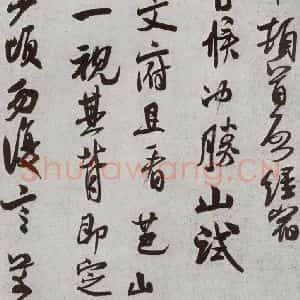 頓首启経宿
候冲勝山試
文府且看芭山
一視其背即定
少頃勿復言
Shufawang.CN